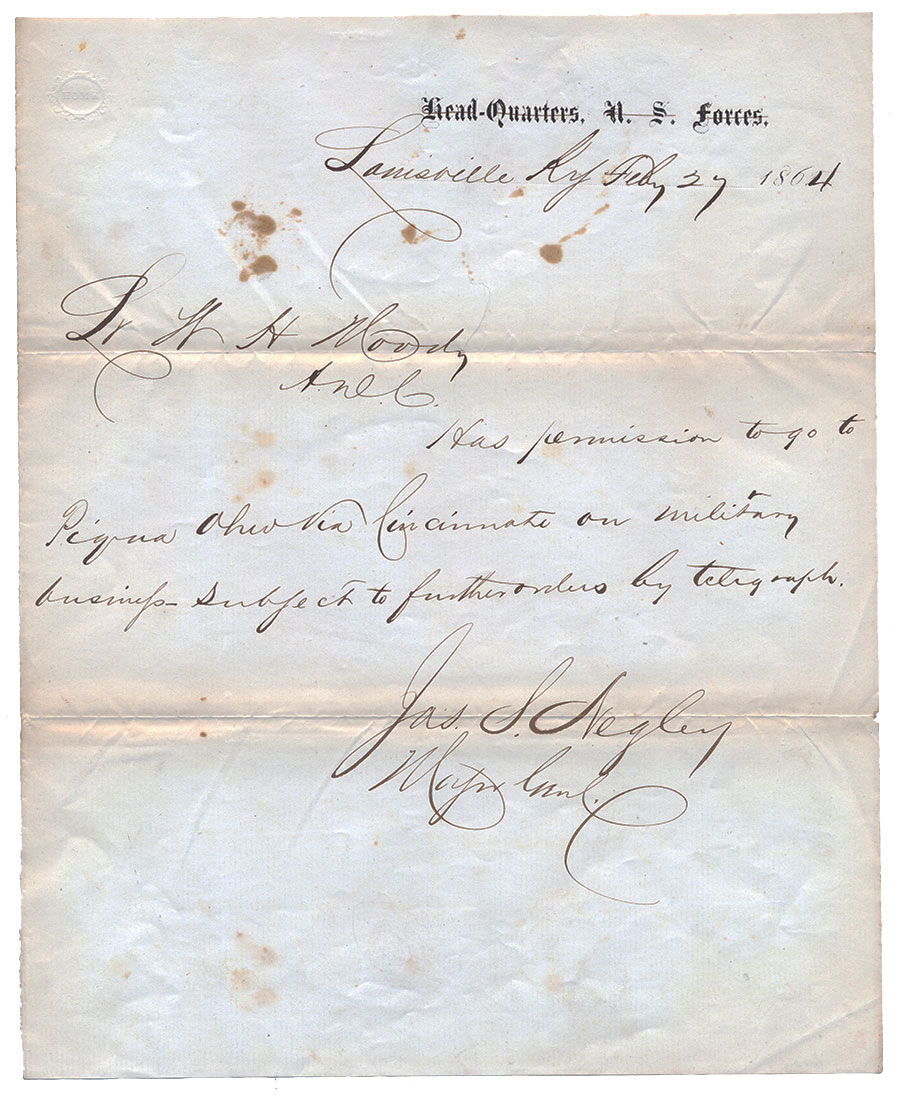 Head-Quarters, U. S. Forces,
Louisville Ky Feby 27 1864
Lt W H Moody
A.D.C.
Has permission to go to
Piqua Ohio Via Cincinnate on military
business- subject to further orders by telegraph.
Jas. S. Negley
Major Genl.